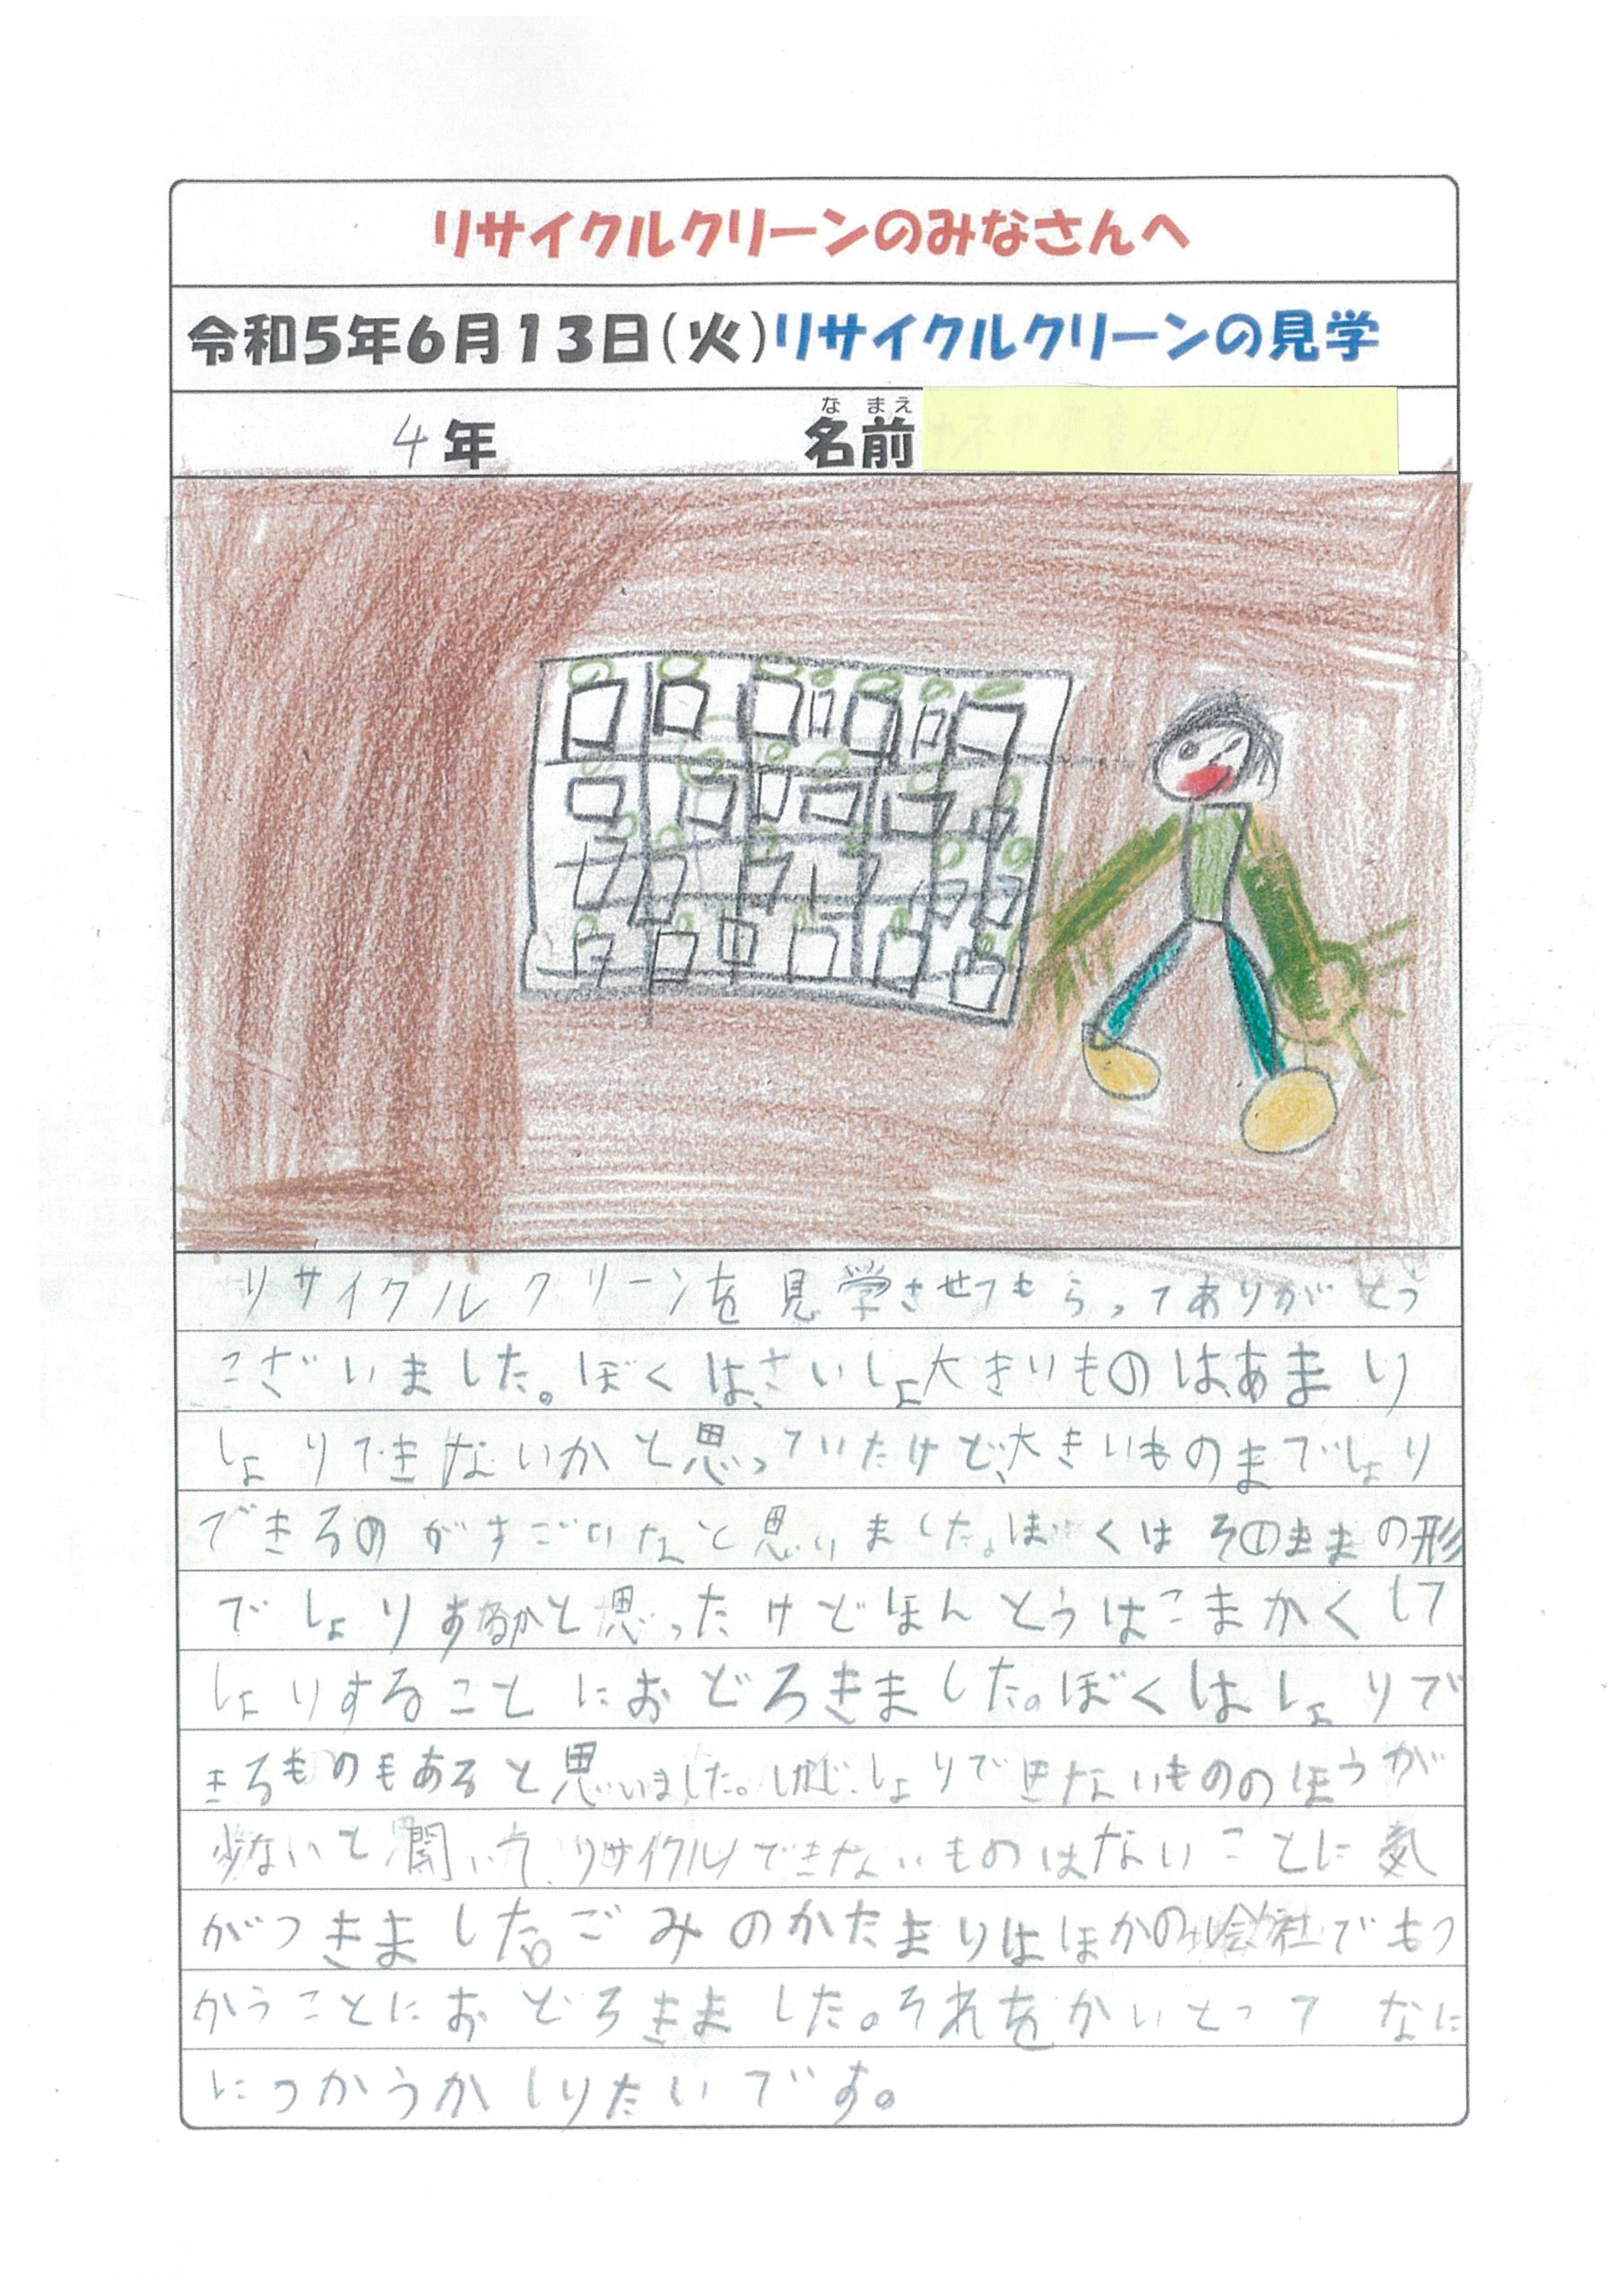 リサイクルクリーンのみなさんへ
令和5年6月13日(火)リサイクルクリーンの見学
4年 名前
なまえ
リサイクルクリーンを見学させてもらってありがとう
ございました。ぼくは、さいしょ大きいものは、あまり
しょりできないかと思っていたけど、大きいものまでしょり
できるのがすごいなと思いました。ぼくはそのままの形
でしょりするかと思ったけどほんとうはこまかくして
しょりすることにおどろきました。ぼくはしょりで
きるものもあると思いました。しょりできないもののほうが
少ないと聞いて、リサイクルできないものはないことに気
がつきました。ごみのかたまりはほかの会社でもつ
かうことにおどろきました。それをかいとって なに
につかうかしりたいです。